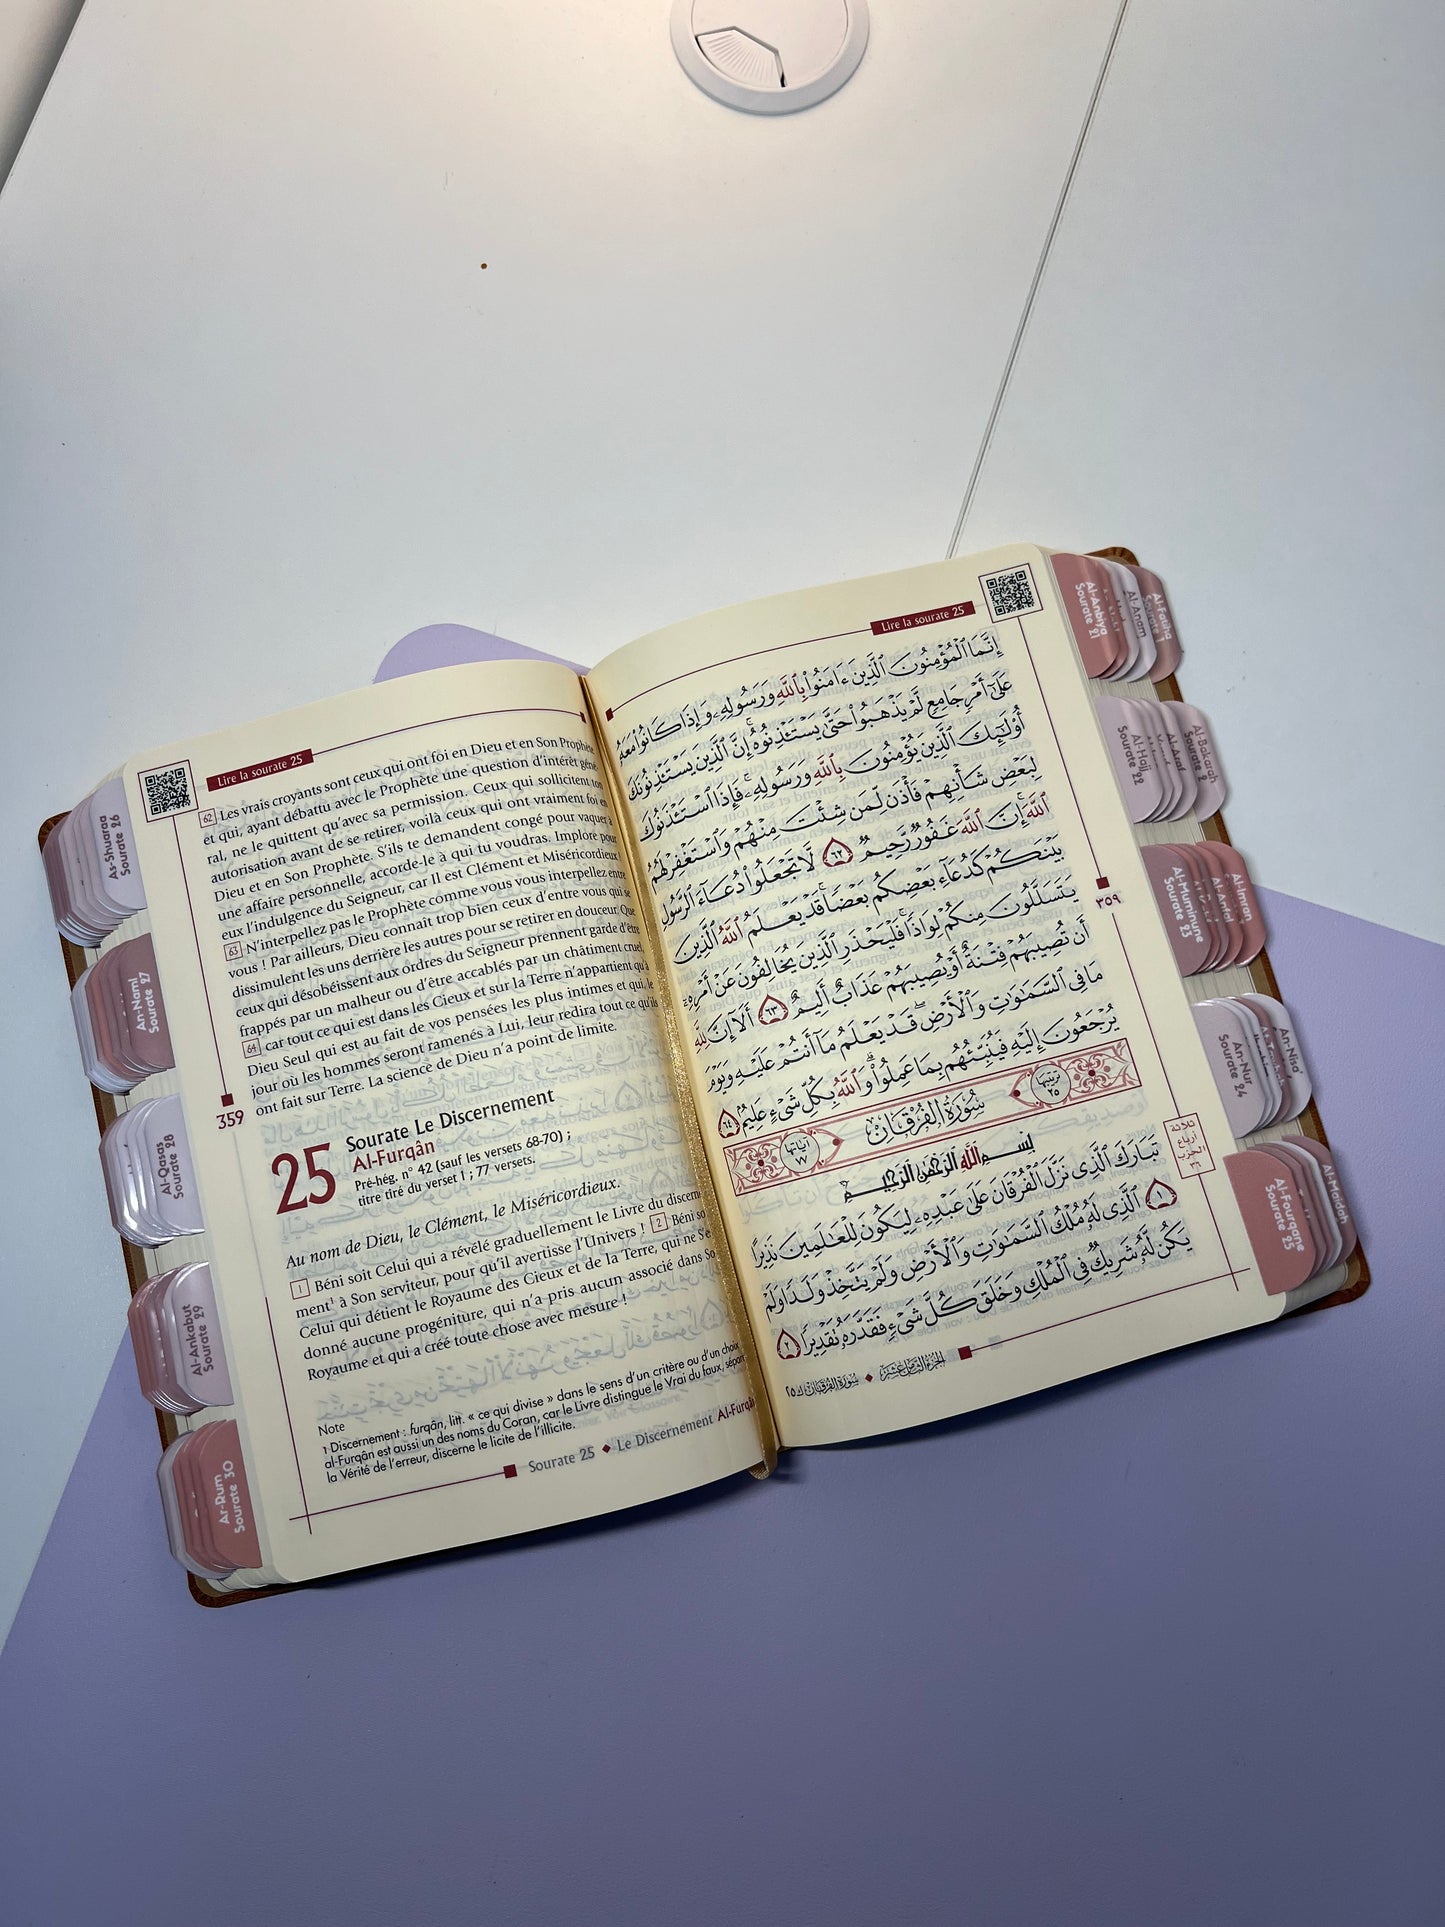 Lire la sourate 25
62 Les vrais croyants sont ceux qui ont foi en Dieu et en Son Prophète
et qui, ayant débattu avec le Prophète une question d'intérêt géné-
ral, ne le quittent qu'avec sa permission. Ceux qui sollicitent ton
autorisation avant de se retirer, voilà ceux qui ont vraiment foi en
Dieu et en Son Prophète. S'ils te demandent congé pour vaquer à
une affaire personnelle, accorde-le à qui tu voudras. Implore pour
eux l'indulgence du Seigneur, car Il est Clément et Miséricordieux
63 N'interpellez pas le Prophète comme vous vous interpellez entre
vous ! Par ailleurs, Dieu connaît trop bien ceux d'entre vous qui se
dissimulent les uns derrière les autres pour se retirer en douceur. Que
ceux qui désobéissent aux ordres du Seigneur prennent garde d'être
frappés par un malheur ou d'être accablés par un châtiment cruel,
64 car tout ce qui est dans les Cieux et sur la Terre n'appartient qu'à
Dieu Seul qui est au fait de vos pensées les plus intimes et qui, le
jour où les hommes seront ramenés à Lui, leur redira tout ce qu'ils
ont fait sur Terre. La science de Dieu n'a point de limite.
359
25
Sourate Le Discernement
Al-Furqân
Pré-hég. n° 42 (sauf les versets 68-70) ;
titre tiré du verset 1 ; 77 versets.
Au nom de Dieu, le Clément, le Miséricordieux.
1 Béni soit Celui qui a révélé graduellement le Livre du discerne-
ment¹ à Son serviteur, pour qu'il avertisse l'Univers ! 2 Béni so
Celui qui détient le Royaume des Cieux et de la Terre, qui ne S'e
donné aucune progéniture, qui n'a pris aucun associé dans So
Royaume et qui a créé toute chose avec mesure !
Note
1 Discernement : furqân, litt. « ce qui divise » dans le sens d'un critère ou d'un choix
al-Furqân est aussi un des noms du Coran, car le Livre distingue le Vrai du faux, sépar
la Vérité de l'erreur, discerne le licite de l'illicite.
Sourate 25 ◆ Le Discernement Al-Furqân
As-Shuaraa
Sourate 26
An-Naml
Sourate 27
Al-Qasas
Sourate 28
Al-Ankabut
Sourate 29
Ar-Rum
Sourate 30
Lire la sourate 25
إِنَّمَا الْمُؤْمِنُونَ الَّذِينَ ءَامَنُوا بِاللَّهِ وَرَسُولِهِ وَإِذَا كَانُوا مَعَهُ
عَلَىٰ أَمْرٍ جَامِعٍ لَّمْ يَذْهَبُوا حَتَّىٰ يَسْتَـْٔذِنُوهُ إِنَّ الَّذِينَ يَسْتَـْٔذِنُونَكَ
أُولَٰئِكَ الَّذِينَ يُؤْمِنُونَ بِاللَّهِ وَرَسُولِهِ فَإِذَا اسْتَـْٔذَنُوكَ
لِبَعْضِ شَأْنِهِمْ فَأْذَن لِّمَن شِئْتَ مِنْهُمْ وَاسْتَغْفِرْ لَهُمُ
اللَّهَ إِنَّ اللَّهَ غَفُورٌ رَّحِيمٌ ٦٢ لَّا تَجْعَلُوا دُعَاءَ الرَّسُولِ
بَيْنَكُمْ كَدُعَاءِ بَعْضِكُم بَعْضًا قَدْ يَعْلَمُ اللَّهُ الَّذِينَ
يَتَسَلَّلُونَ مِنكُمْ لِوَاذًا فَلْيَحْذَرِ الَّذِينَ يُخَالِفُونَ عَنْ أَمْرِهِ
أَن تُصِيبَهُمْ فِتْنَةٌ أَوْ يُصِيبَهُمْ عَذَابٌ أَلِيمٌ ٦٣ أَلَا إِنَّ لِلَّهِ
مَا فِي السَّمَٰوَٰتِ وَالْأَرْضِ قَدْ يَعْلَمُ مَا أَنتُمْ عَلَيْهِ وَيَوْمَ
يُرْجَعُونَ إِلَيْهِ فَيُنَبِّئُهُم بِمَا عَمِلُوا وَاللَّهُ بِكُلِّ شَيْءٍ عَلِيمٌ ٦٤
ترتيبها ٢٥ سُورَةُ الفُرْقَان آياتها ٧٧
بِسْمِ اللَّهِ الرَّحْمَٰنِ الرَّحِيمِ
تَبَارَكَ الَّذِي نَزَّلَ الْفُرْقَانَ عَلَىٰ عَبْدِهِ لِيَكُونَ لِلْعَالَمِينَ نَذِيرًا
١ الَّذِي لَهُ مُلْكُ السَّمَٰوَٰتِ وَالْأَرْضِ وَلَمْ يَتَّخِذْ وَلَدًا وَلَمْ
يَكُن لَّهُ شَرِيكٌ فِي الْمُلْكِ وَخَلَقَ كُلَّ شَيْءٍ فَقَدَّرَهُ تَقْدِيرًا ٢
الجزء الثامن عشر ◆ سورة الفرقان ٢٥
٣٥٩
ثلاثة
ارباع
الحزب
٣٦
Al-Anbiya
Sourate 21
Al-Anam
Al-Fatiha
Sourate 1
Al-Hajj
Sourate 22
Al-Araf
Al-Bakarah
Sourate 2
Al-Muminune
Sourate 23
Al-Anfal
Al-Imran
An-Nur
Sourate 24
An-Nisa'
Al-Fourqane
Sourate 25
Al-Maidah